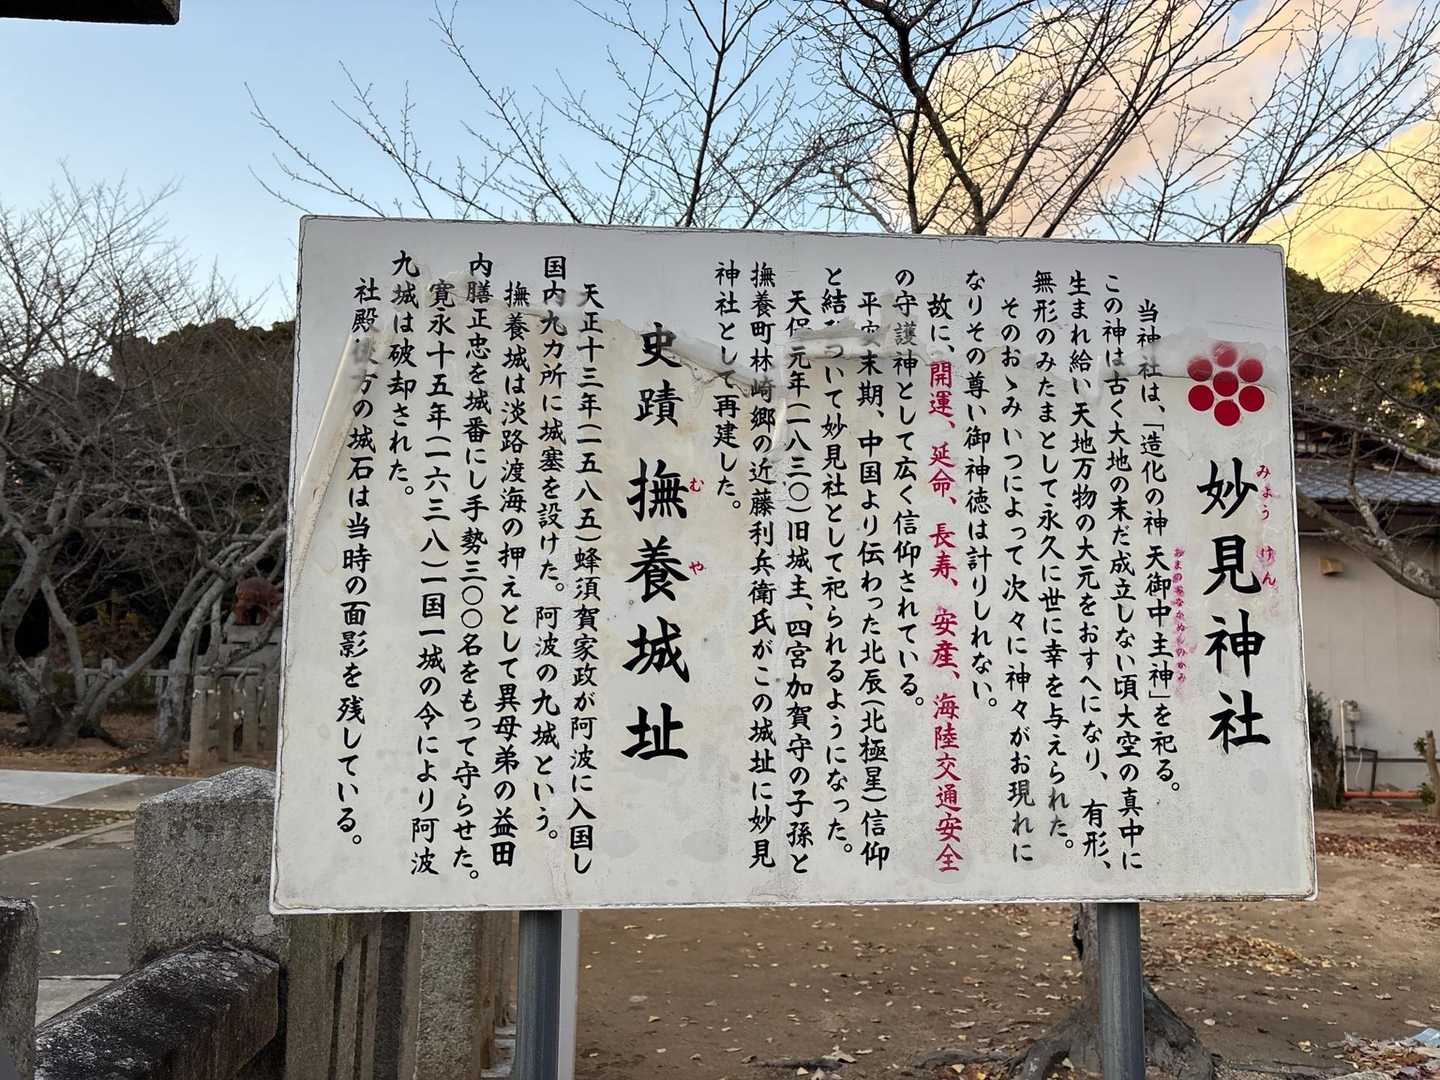 妙見神社
みょうけん
当神社は、「造化の神 天御中主神」を祀る。
あまのみなかぬしのかみ
この神は古く大地の末だ成立しない頃大空の真中に
生まれ給い天地万物の大元をおすへになり、有形、
無形のみたまとして永久に世に幸を与えられた。
そのおゝみいつによって次々に神々がお現れに
なりその尊い御神徳は計りしれない。
故に、開運、延命、長寿、安産、海陸交通安全
の守護神として広く信仰されている。
平安末期、中国より伝わった北辰(北極星)信仰
と結びついて妙見社として祀られるようになった。
天保元年(一八三〇)旧城主、四宮加賀守の子孫と
撫養町林崎郷の近藤利兵衛氏がこの城址に妙見
神社として再建した。
史蹟 撫養城址
むや
天正十三年(一五八五)蜂須賀家政が阿波に入国し
国内九カ所に城塞を設けた。阿波の九城という。
撫養城は淡路渡海の押えとして異母弟の益田
内膳正忠を城番にし手勢三〇〇名をもって守らせた。
寛永十五年(一六三八)一国一城の令により阿波
九城は破却された。
社殿後方の城石は当時の面影を残している。